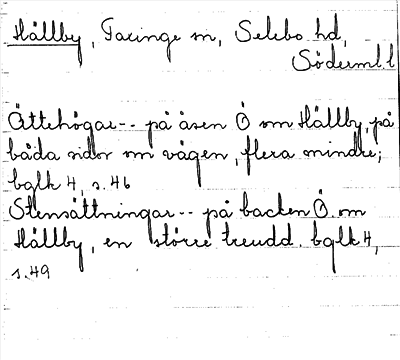 Hällby, Taringe sn, Selebo hd,
Söderml l
Ättehögar -- på åsen Ö om Hällby, på
båda sidor om vägen, flera mindre;
bglk 4, s. 46
Stensättningar -- på backen Ö. om
Hällby, en större treudd. bglk 4,
s. 49